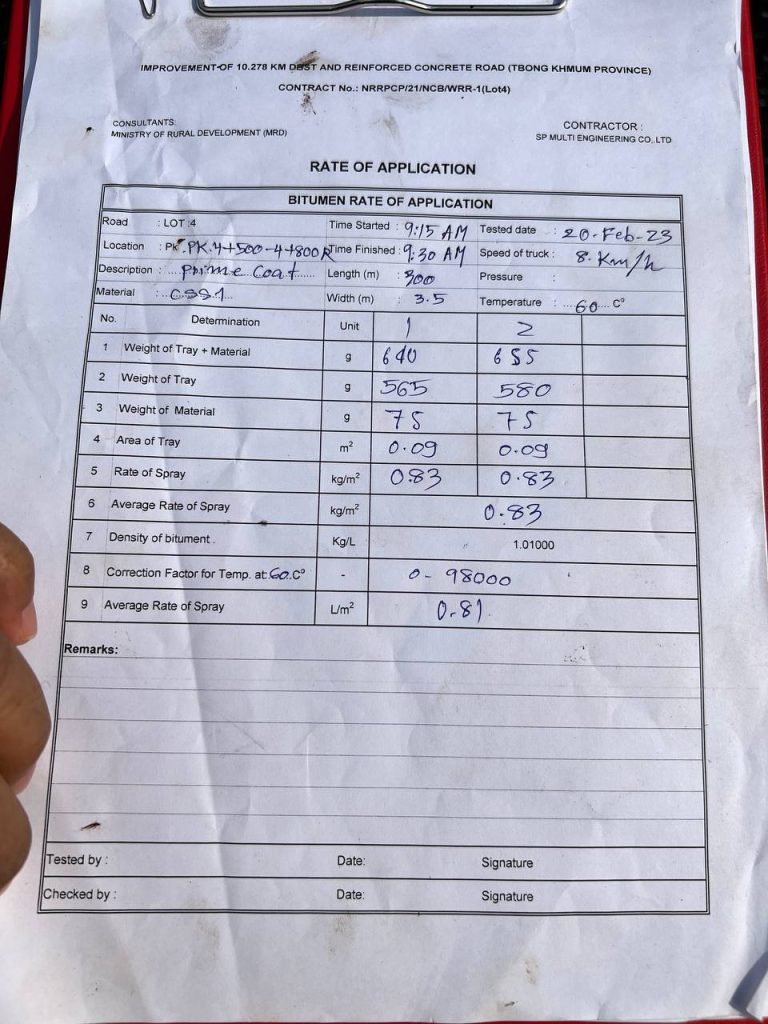 IMPROVEMENT OF 10.278 KM DBST AND REINFORCED CONCRETE ROAD (TBONG KHMUM PROVINCE)
CONTRACT No.: NRRPCP/21/NCB/WRR-1(Lot4)
CONSULTANTS: CONTRACTOR :
MINISTRY OF RURAL DEVELOPMENT (MRD) SP MULTI ENGINEERING CO,.LTD
RATE OF APPLICATION
BITUMEN RATE OF APPLICATION
Road : LOT 4 Time Started : 9:15 AM Tested date : 20-Feb-23
Location : PK PK.4+500-4+800R Time Finished : 9:30 AM Speed of truck : 8 Km/h
Description : Prime Coat Length (m) : 300 Pressure :
Material : CSS1 Width (m) : 3.5 Temperature : 60 C°
No. Determination Unit 1 2
1 Weight of Tray + Material g 640 655
2 Weight of Tray g 565 580
3 Weight of Material g 75 75
4 Area of Tray m² 0.09 0.09
5 Rate of Spray kg/m² 0.83 0.83
6 Average Rate of Spray kg/m² 0.83
7 Density of bitument Kg/L 1.01000
8 Correction Factor for Temp. at 60 C° - 0-98000
9 Average Rate of Spray L/m² 0.81
Remarks:
Tested by : Date: Signature
Checked by : Date: Signature